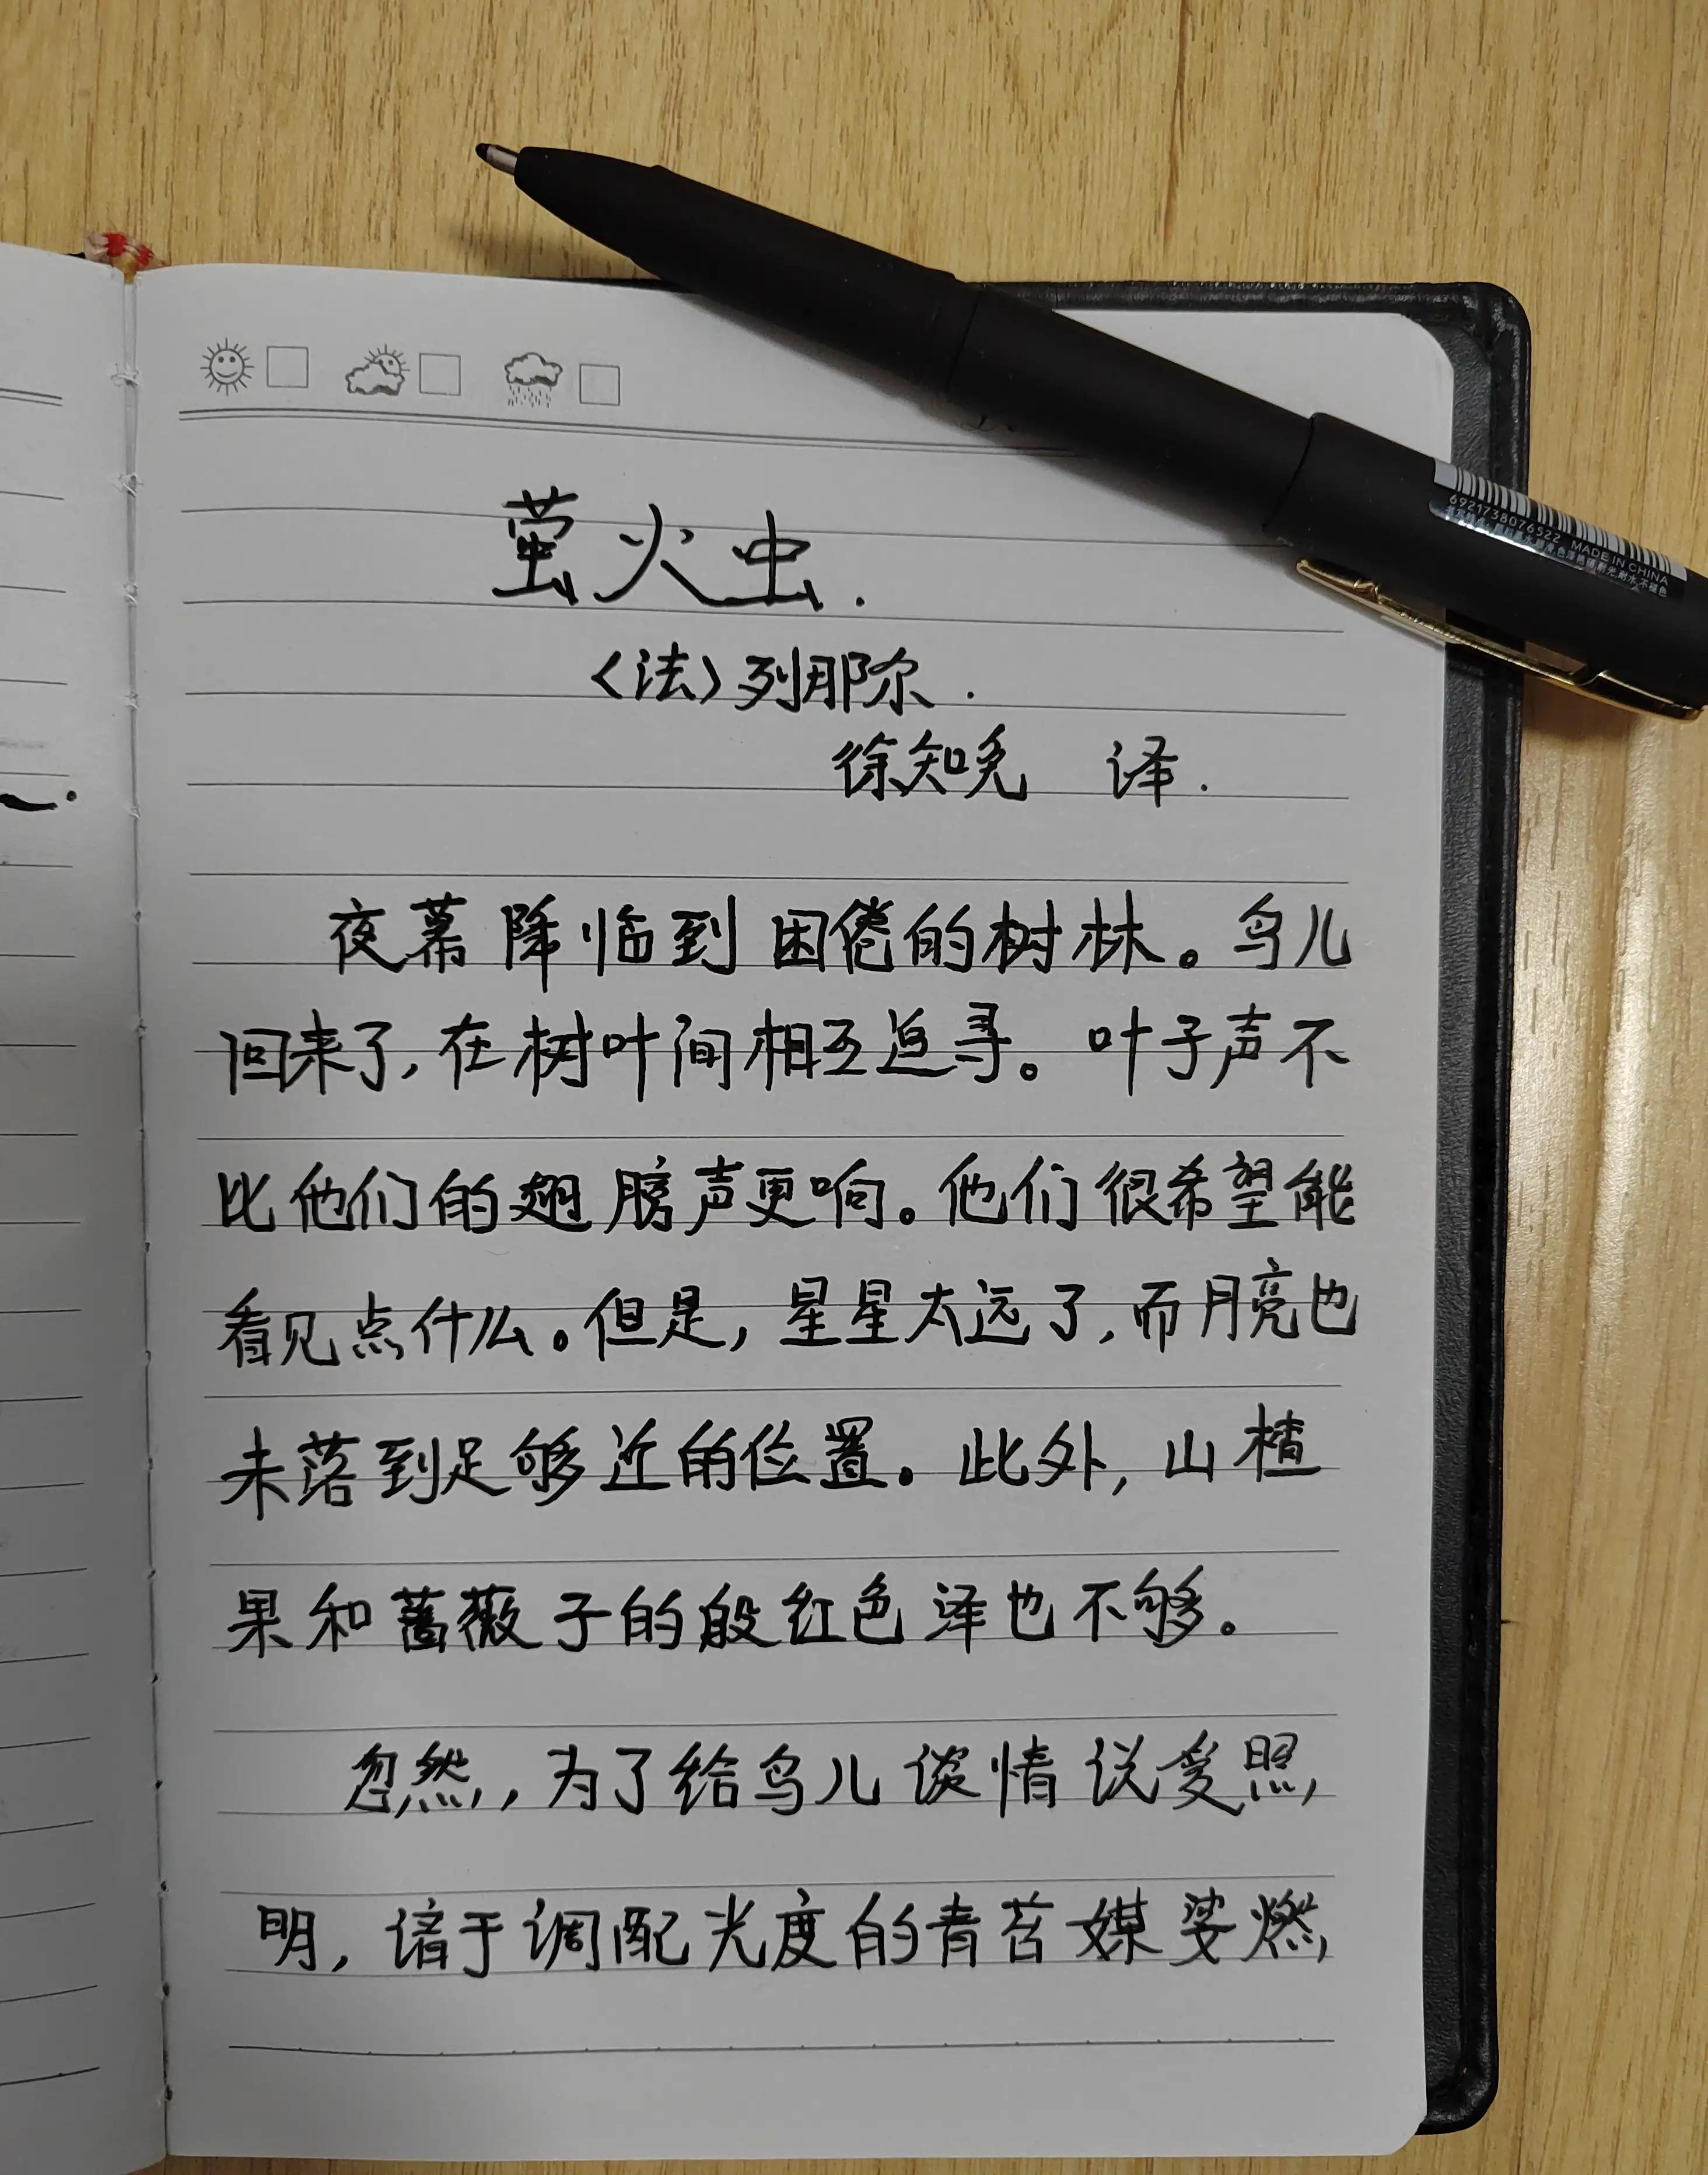 萤火虫.
〈法〉列那尔.
徐知免 译.
夜幕降临到困倦的树林。鸟儿
回来了,在树叶间相互追寻。叶子声不
比他们的翅膀声更响。他们很希望能
看见点什么。但是,星星太远了,而月亮也
未落到足够近的位置。此外,山楂
果和蔷薇子的殷红色泽也不够。
忽然,为了给鸟儿谈情说爱照
明,谙于调配光度的青苔媒婆燃
6921738076522 MADE IN CHINA